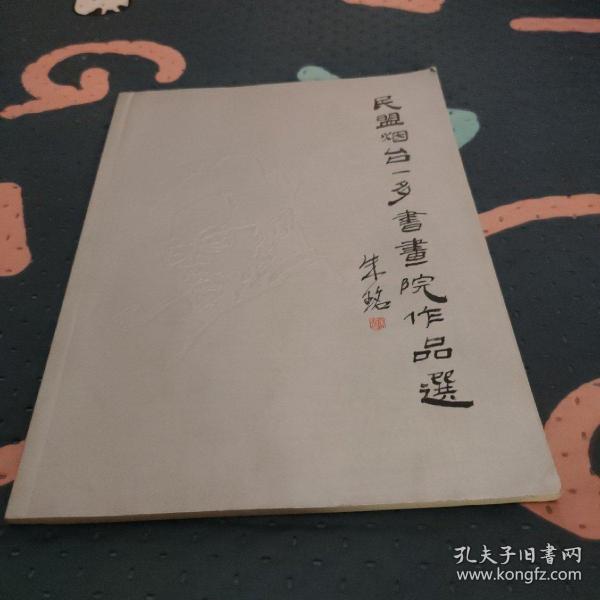 民盟烟台一多書畫院作品選
朱銘
孔夫子旧书网
www.kongfz.com